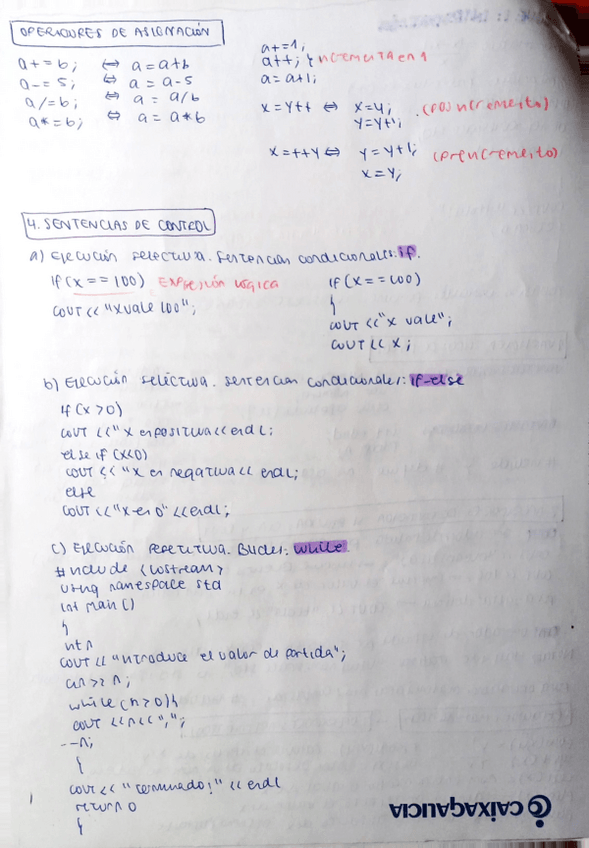 OPERADORES DE ASIGNACIÓN
a+=b; ⇔ a=a+b
a-=5; ⇔ a=a-5
a/=b; ⇔ a=a/b
a*=b; ⇔ a=a*b
a+=1;
a++; } incrementa en 1
a=a+1;
x=y++ ⇔ x=y; (posincremento)
y=y+1;
x=++y ⇔ y=y+1; (preincremento)
x=y;
4. SENTENCIAS DE CONTROL
a) Ejecución selectiva. Sentencias condicionales: if.
if (x==100) Expresión lógica
cout <<"x vale 100";
if (x==100)
{
cout <<"x vale";
cout << x;
b) Ejecución selectiva. Sentencias condicionales: if-else
if (x>0)
cout <<"x es positiva<<endl;
else if (x<0)
cout <<"x es negativa<< endl;
else
cout <<"x es 0" <<endl;
c) Ejecución repetitiva. Bucles: while.
#include <iostream>
using namespace std
int main()
{
int n
cout << "introduce el valor de partida";
cin>> n;
while (n>0){
cout <<n<<",";
--n;
}
cout << "terminado!" << endl
return 0
}
CAIXAGALICIA